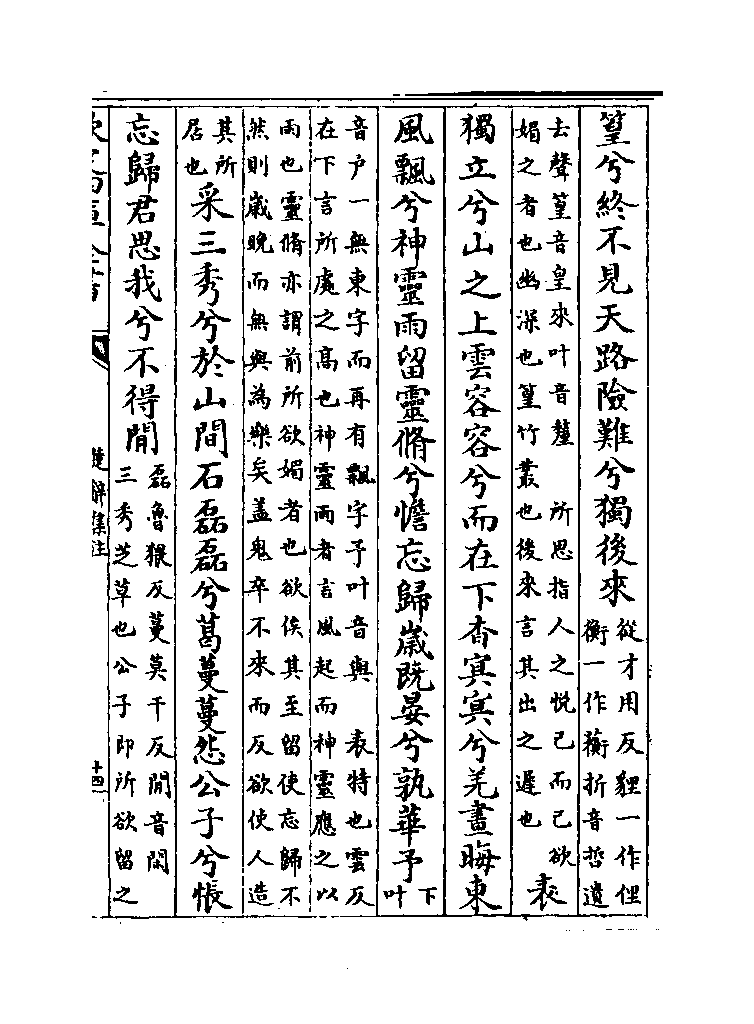 篁兮終不見天路險難兮獨後來從才用反貍一作俚
衡一作蘅折音哲遺
去聲篁音皇來叶音釐　所思指人之悦己而己欲
媚之者也幽深也篁竹叢也後來言其出之遲也表
獨立兮山之上雲容容兮而在下杳冥冥兮羌晝晦東
風飄兮神靈雨留靈脩兮憺忘歸歲既晏兮孰華予下
叶
音户一無東字而再有飄字予叶音與　表特也雲反
在下言所處之髙也神靈雨者言風起而神靈應之以
雨也靈脩亦謂前所欲媚者也欲俟其至留使忘歸不
然則歲晚而無與為樂矣蓋鬼卒不來而反欲使人造
其所
居也采三秀兮於山間石磊磊兮葛蔓蔓怨公子兮悵
忘歸君思我兮不得閒磊魯猥反蔓莫干反閒音閑
三秀芝草也公子即所欲留之
欽定四庫全書
楚辭集注
十四